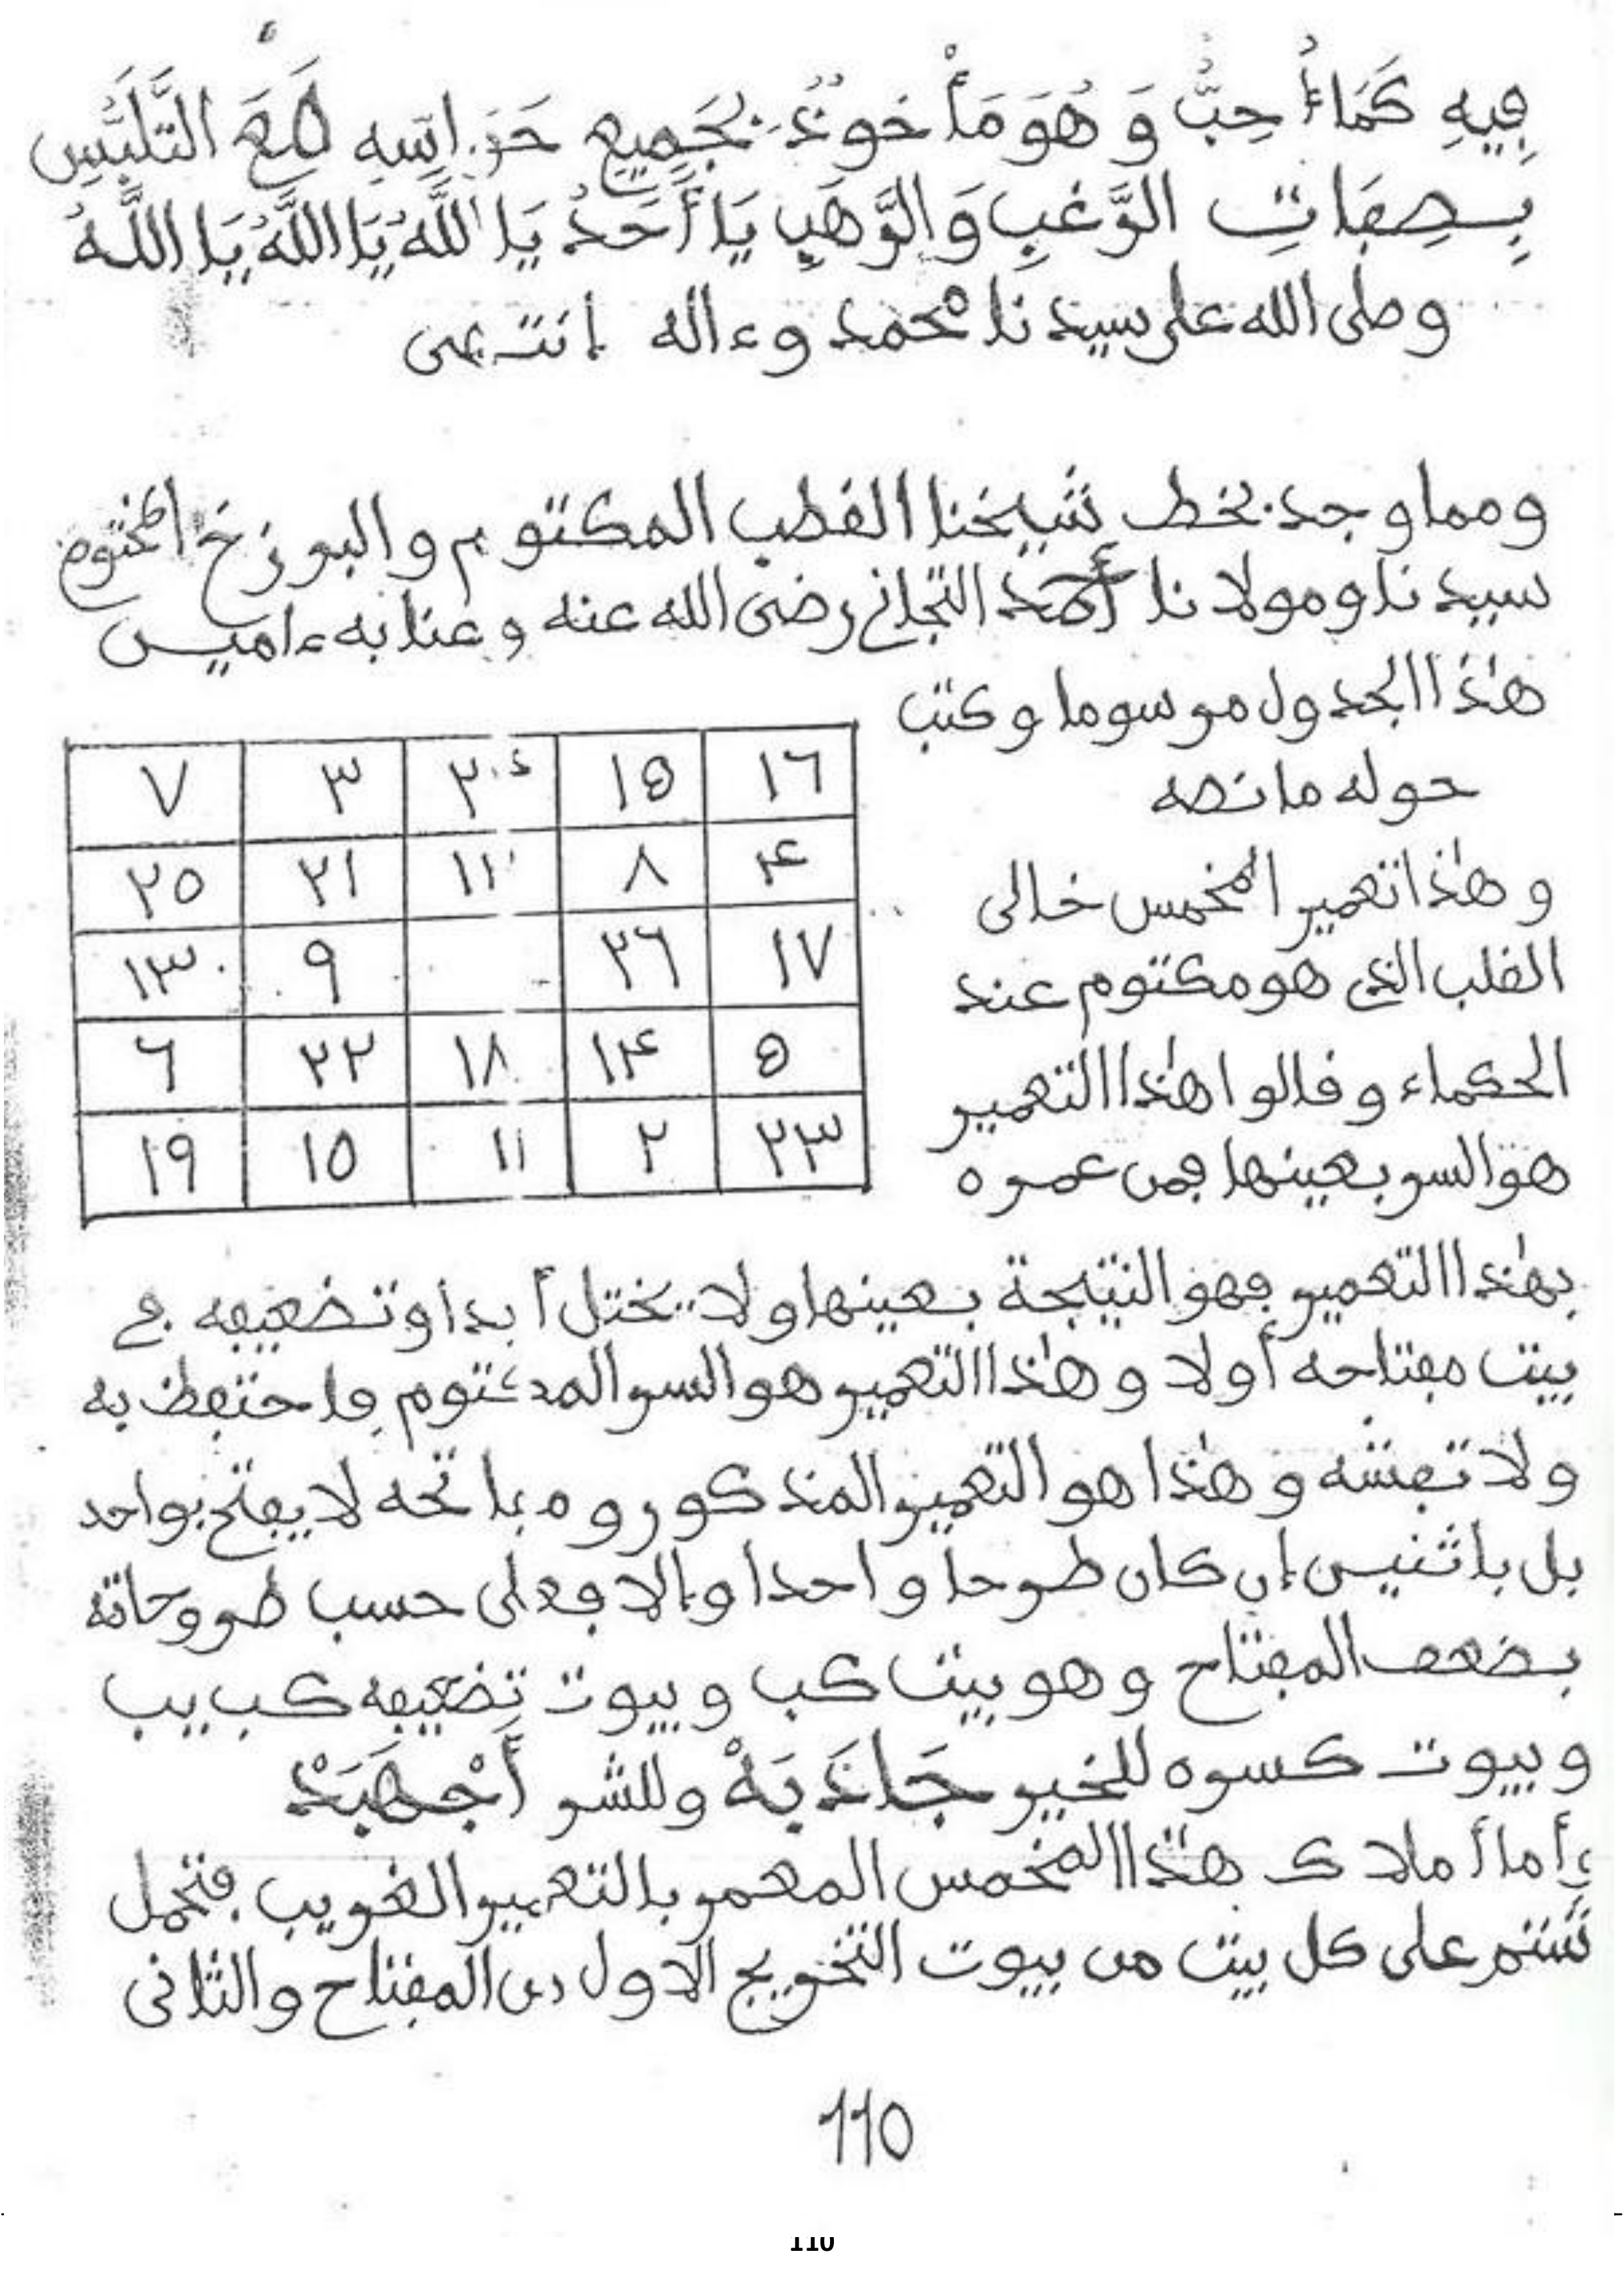 فِيهِ كَمَاءُ حِبُّ وَ هُوَ مَأْخوذٌ بجَمِيعِ حَوَاسِّهِ مَعَ التَّلَبُّسِ
بِصِفَاتِ الرَّغبِ وَالرَّهَبِ يَا أَحَدُ يَا اللَّهُ يَا اللَّهُ يَا اللَّهُ
وصلى الله على سيدنا محمد وءاله إنتهى
ومما وجد بخط شيخنا القطب المكتوم والبرزخ المختوم
سيدنا ومولانا أحمد التجاني رضى الله عنه وعنا به ءاميـن
هٰذا الجدول مرسوما وكتب
حوله ما نصه
٧ ٣ ٢٠٤ ١٥ ١٦
٢٥ ٢١ ١١ ٨ ٤
١٣ ٩ ٢٦ ١٧
٦ ٢٢ ١٨ ١٤ ٥
١٩ ١٥ ١١ ٢ ٢٣
وهٰذا تعمير المخمس خالى
القلب الذى هو مكتوم عند
الحكماء وقالوا هٰذا التعمير
هو السر بعينها فمن عمره
بهٰذا التعمير فهو النتيجة بعينها ولا يختل أبدا وتضعيفه في
بيت مفتاحه أولا وهٰذا التعمير هو السر المكتوم فاحتفظ به
ولا تفشه وهٰذا هو التعمير المذكور ومفاتحه لا يفتح بواحد
بل باثنيـن إن كان طرحا واحدا وإلا فعلى حسب طروحاته
بضعف المفتاح وهو بيت كب وبيوت تضعيفه كب يب
وبيوت كسره للخير جَاذَبَهْ وللشر أَجْهَبَدْ
وأما أملاك هٰذا المخمس المعمر بالتعمير الغريب فتجمل
ستتم على كل بيت من بيوت التخريج الاول من المفتاح والثانى
110
110